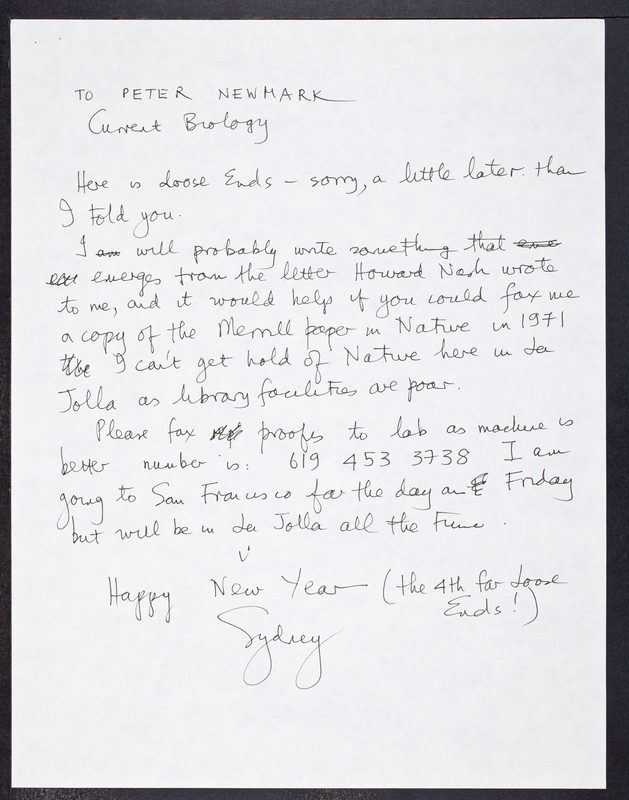 TO PETER NEWMARK
Current Biology
Here is Loose Ends – sorry, a little later than
I told you.
I am will probably write something that eme
emerges from the letter Howard Nash wrote
to me, and it would help if you could fax me
a copy of the Merrill paper in Nature in 1971
the I can't get hold of Nature here in La
Jolla as library facilities are poor.
Please fax proofs to lab as machine is
better number is: 619 453 3738 I am
going to San Francisco for the day on Friday
but will be in La Jolla all the time.
Happy New Year (the 4th for Loose
Ends!)
Sydney